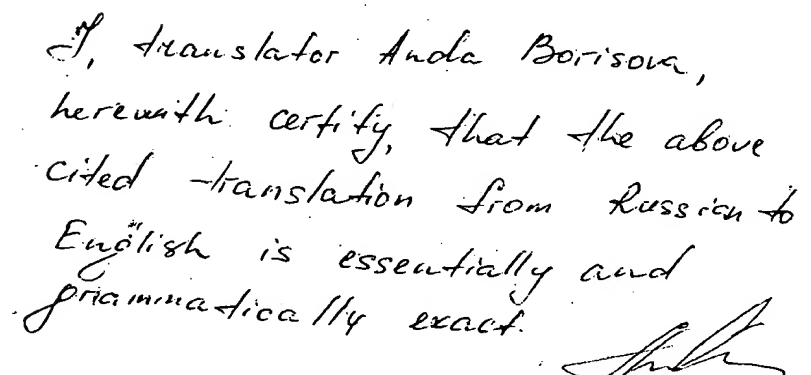 I, translator Anda Borisova,
herewith certify, that the above
cited translation from Russian to
English is essentially and
grammatically exact.